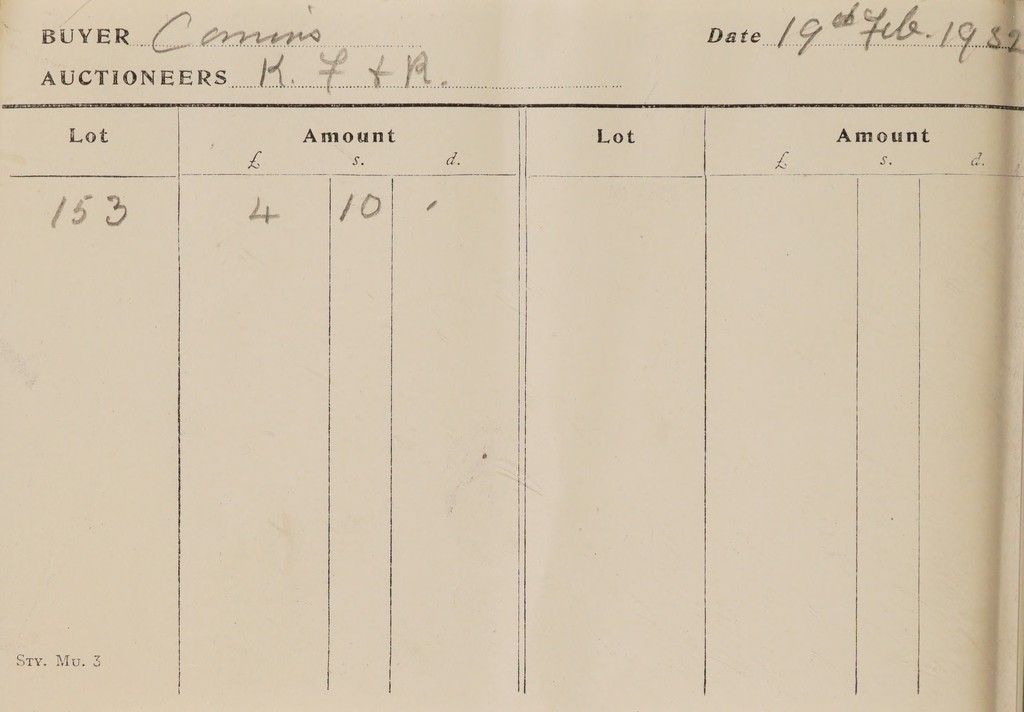 BUYER Comins Date 19th Feb. 1932
AUCTIONEERS K. F & R.
Lot Amount Lot Amount
£ s. d. £ s. d.
153 4 10 '
STY. MU. 3